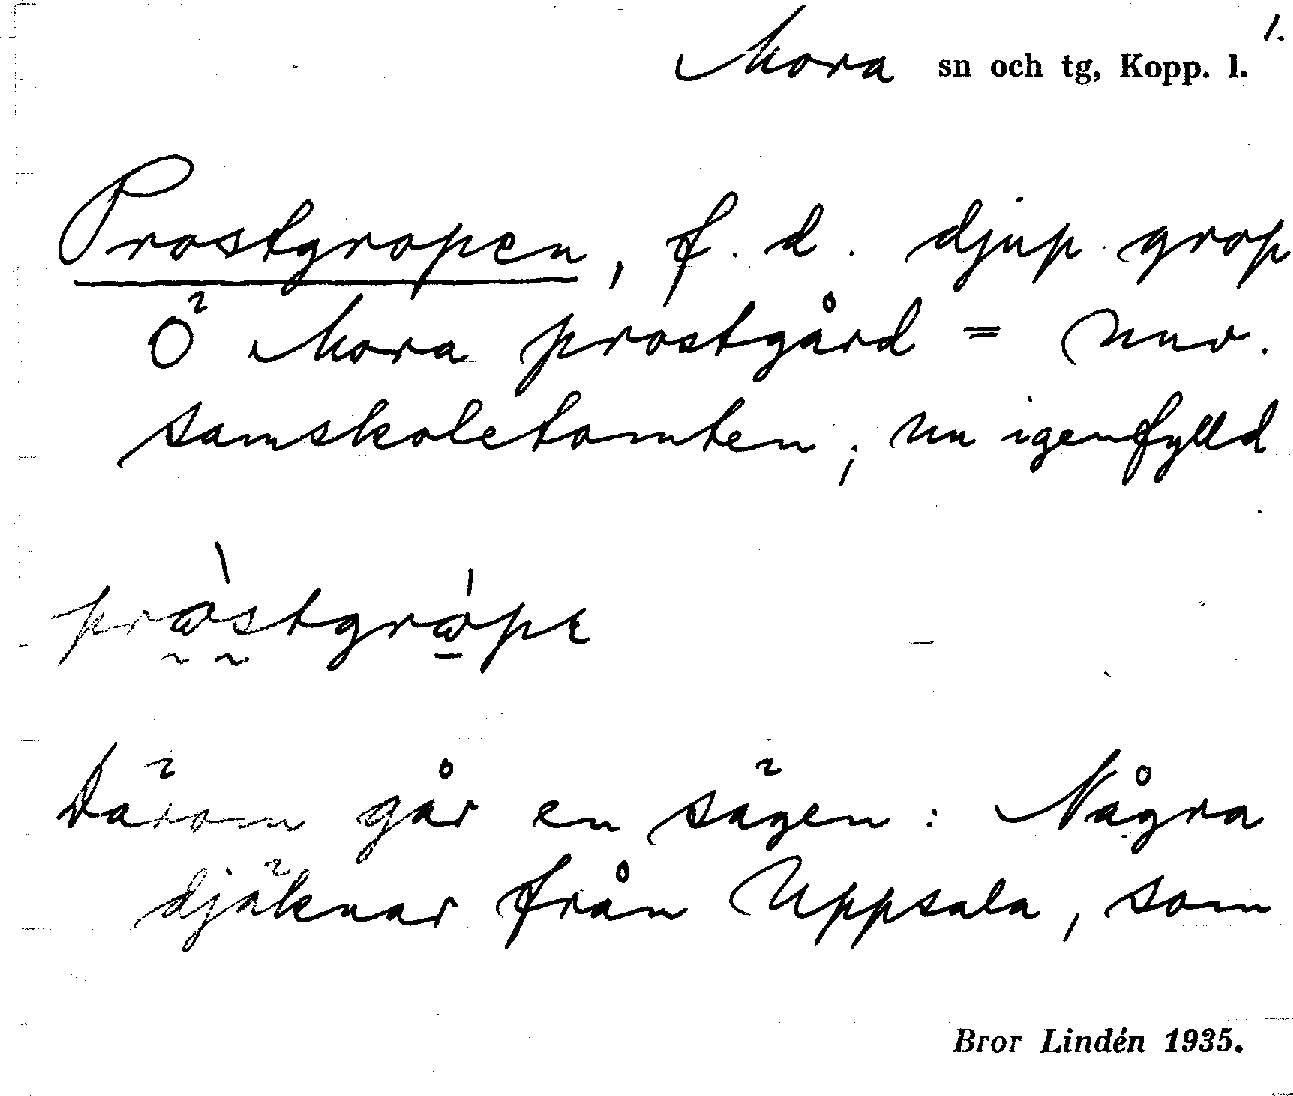 1.
Mora sn och tg, Kopp. l.
Prostgropen, f. d. djup grop
Ö Mora prostgård = nuv.
samskoletomten; nu igenfylld
pròstgrópe
Därom går en sägen: Några
djäknar från Uppsala, som
Bror Lindén 1935.